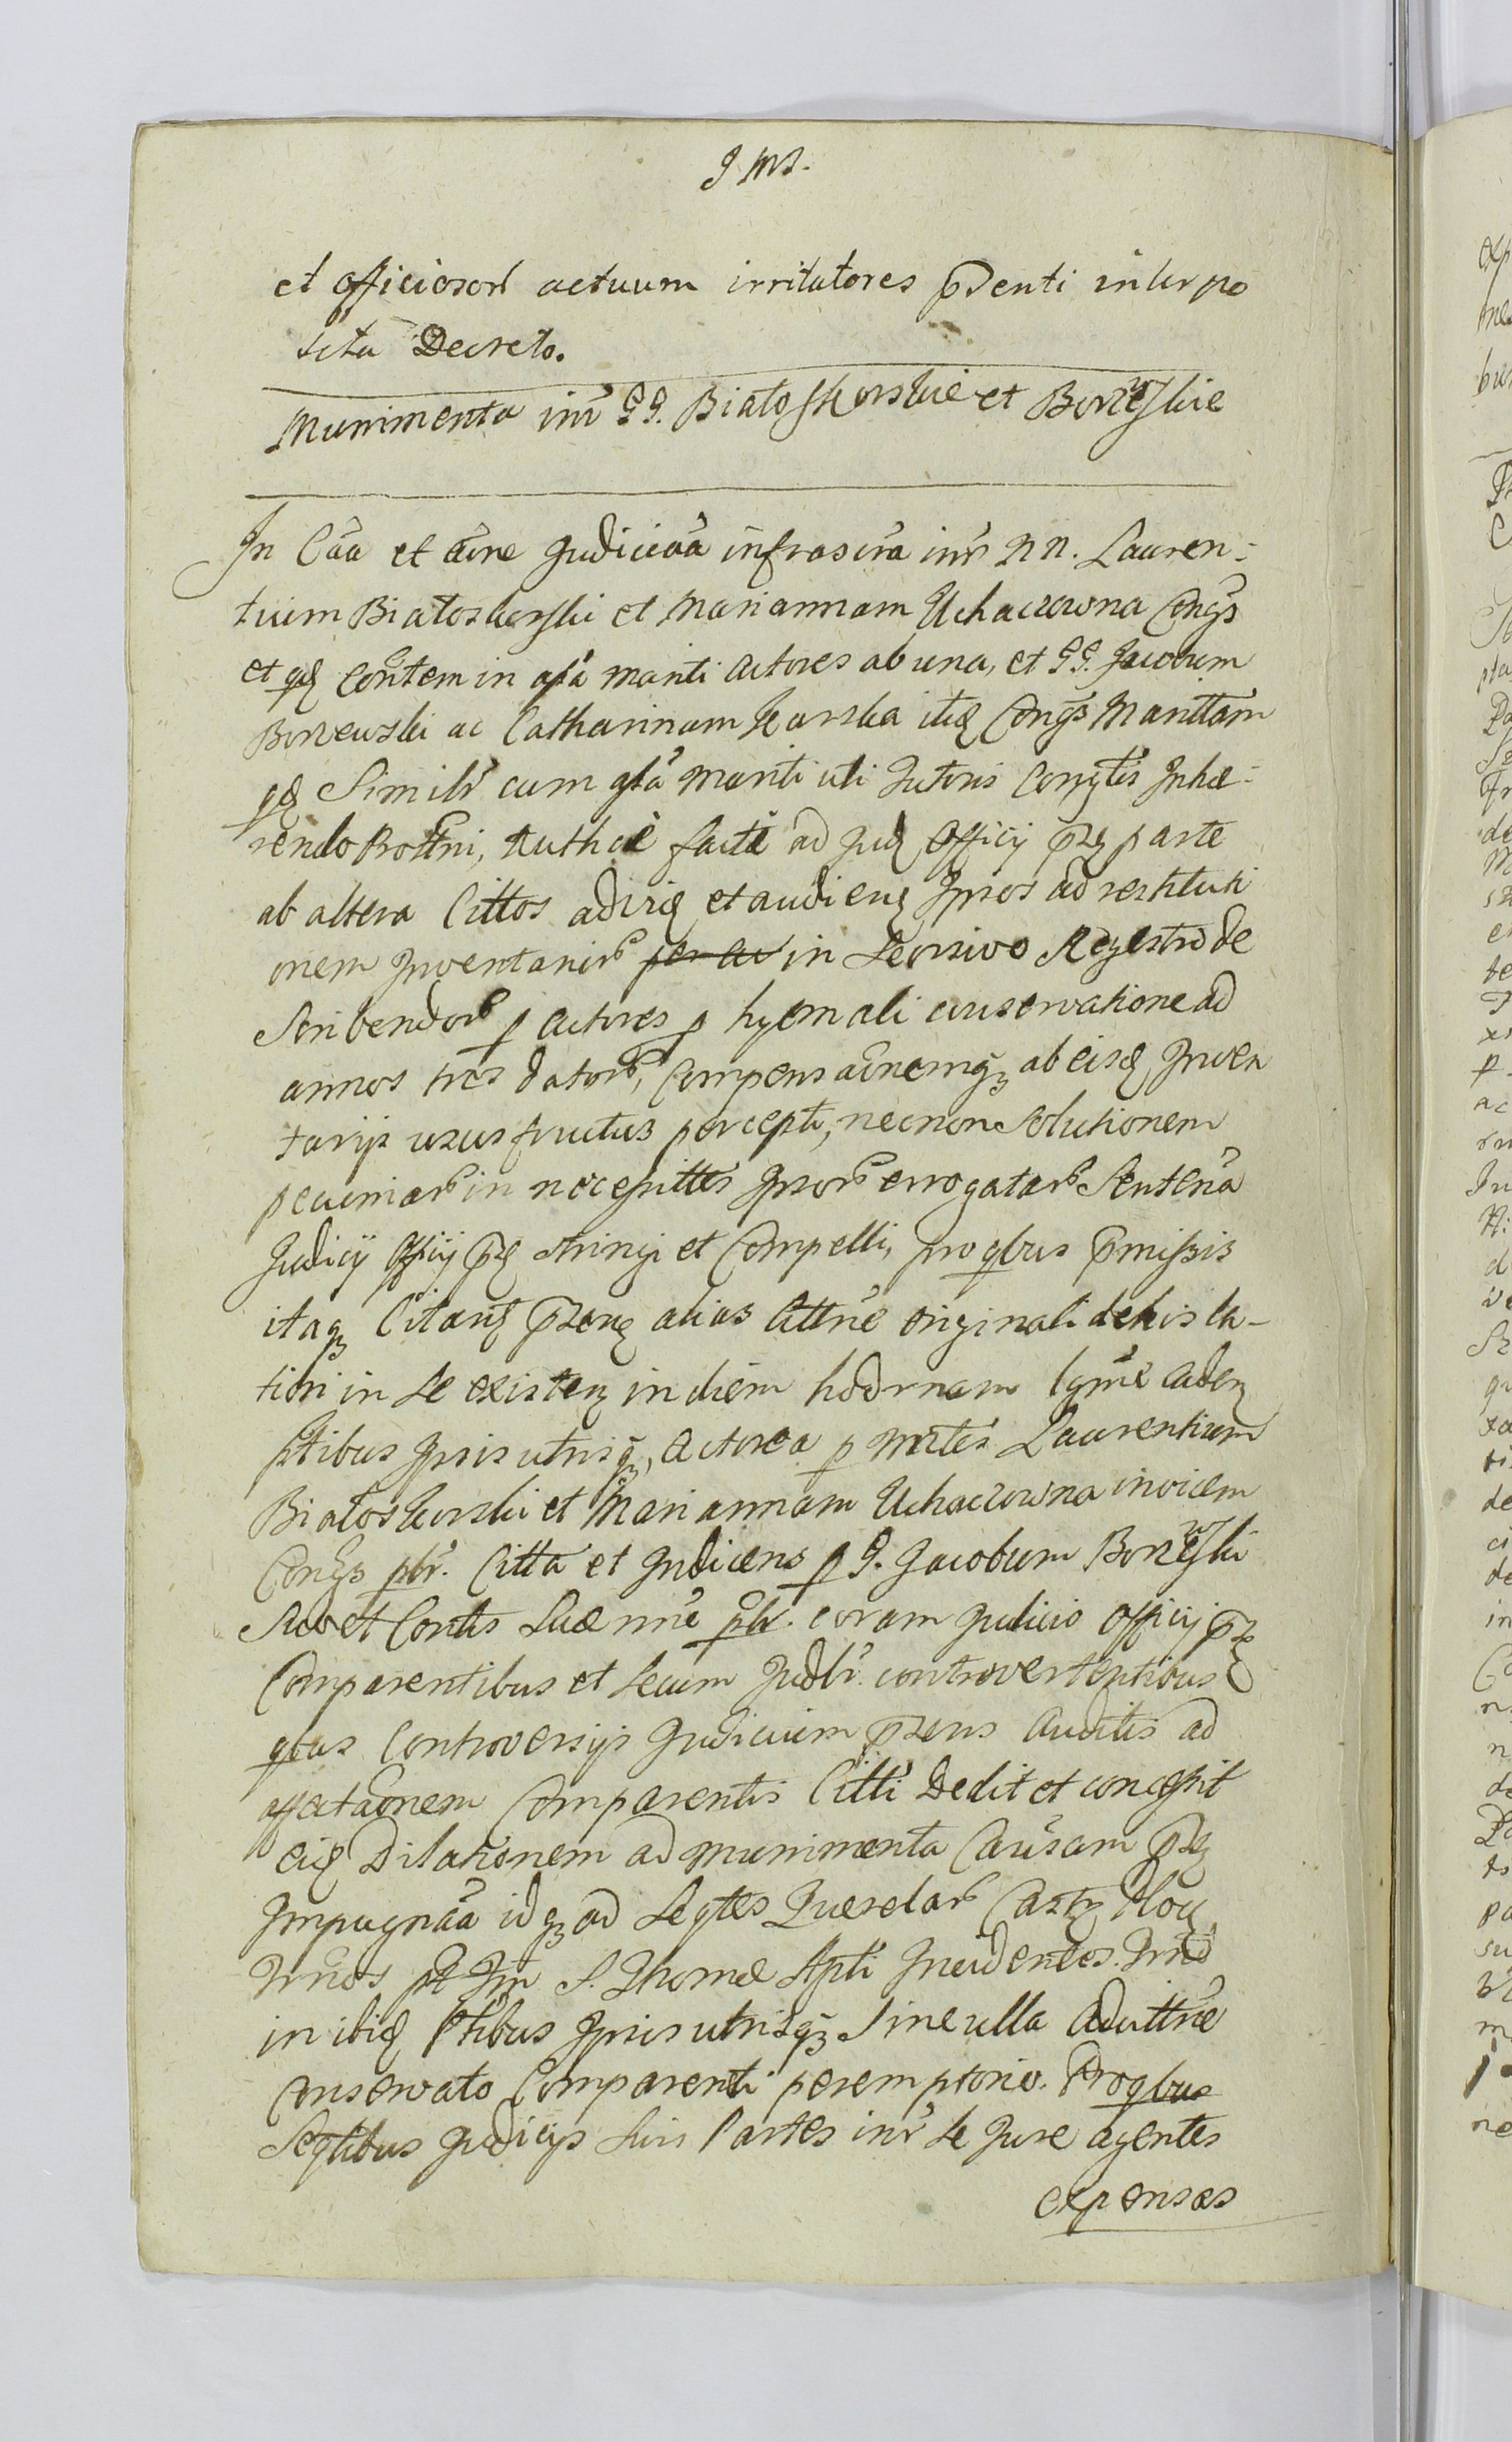 J M S.
et officiosor actuum irritatores pdenti interpo
sita Decreto.
Munimenta inr GG. Białoskorskie et Borzewskie
In Caa et aone Judiciaa infrascra inr NN. Lauren-
tium Białoskorski et Mariannam Uchaczowna Congs
et qd contem in asa manti actores ab una, et GG. Jacobum
Borzewski ac Catharinam Karska itid Congs Manttam
qd Similr cum asa Mariti uti Tutoris Conrytis Inhæ-
rendo Rostni, Authæ factæ ad Jud Officij pns parte
ab altera Cittos ad vid et audiend Ipsos ad restituti
onem Inventarior in Seorsivo Regestro de
Scribendor p actores p hyemali conservatione ad
annos tres dator, Compensaonemq ab eisd Inven
tarijs ususfructus percepti, necnon Solutionem
pecuniar in necessittes Ipsor errogatar Sentena
Judicij Officij pns stringi et Compelli, pro qbus pmissis
itaq Citaon pzens alias Cittne originali de his la-
tiori in se existen in diem hodrnam lgme caden
ptibus Ipsis utrisq, actorea p Mctes Laurentium
Białoskorski et Mariannam Uchaczowna invicem
Congs pbr. Citta et Judicens p G. Jacobum Borzewski
Suo et Contis Suæ nne pbr. coram Judicio Officij pns
Comparentibus et Secum Judlr. controvertentibus
qbus Controversijs Judicium pzens auditis ad
affectaonem Comparentis Citti Dedit et concessit
eid Dilationem ad Munimenta Causam pns
Impugnaa idq ad Seqtes Querelar Castr
Trnos pt Fm S. Thomæ Apti Incidentes. Trno
in ibid Ptibus Ipsis utrisq Sine ulla aduttne
conservato Comparenti peremptorio. Pro qbus
Seqtibus Judicijs Suis Partes inr Se Jure agentes
expensas